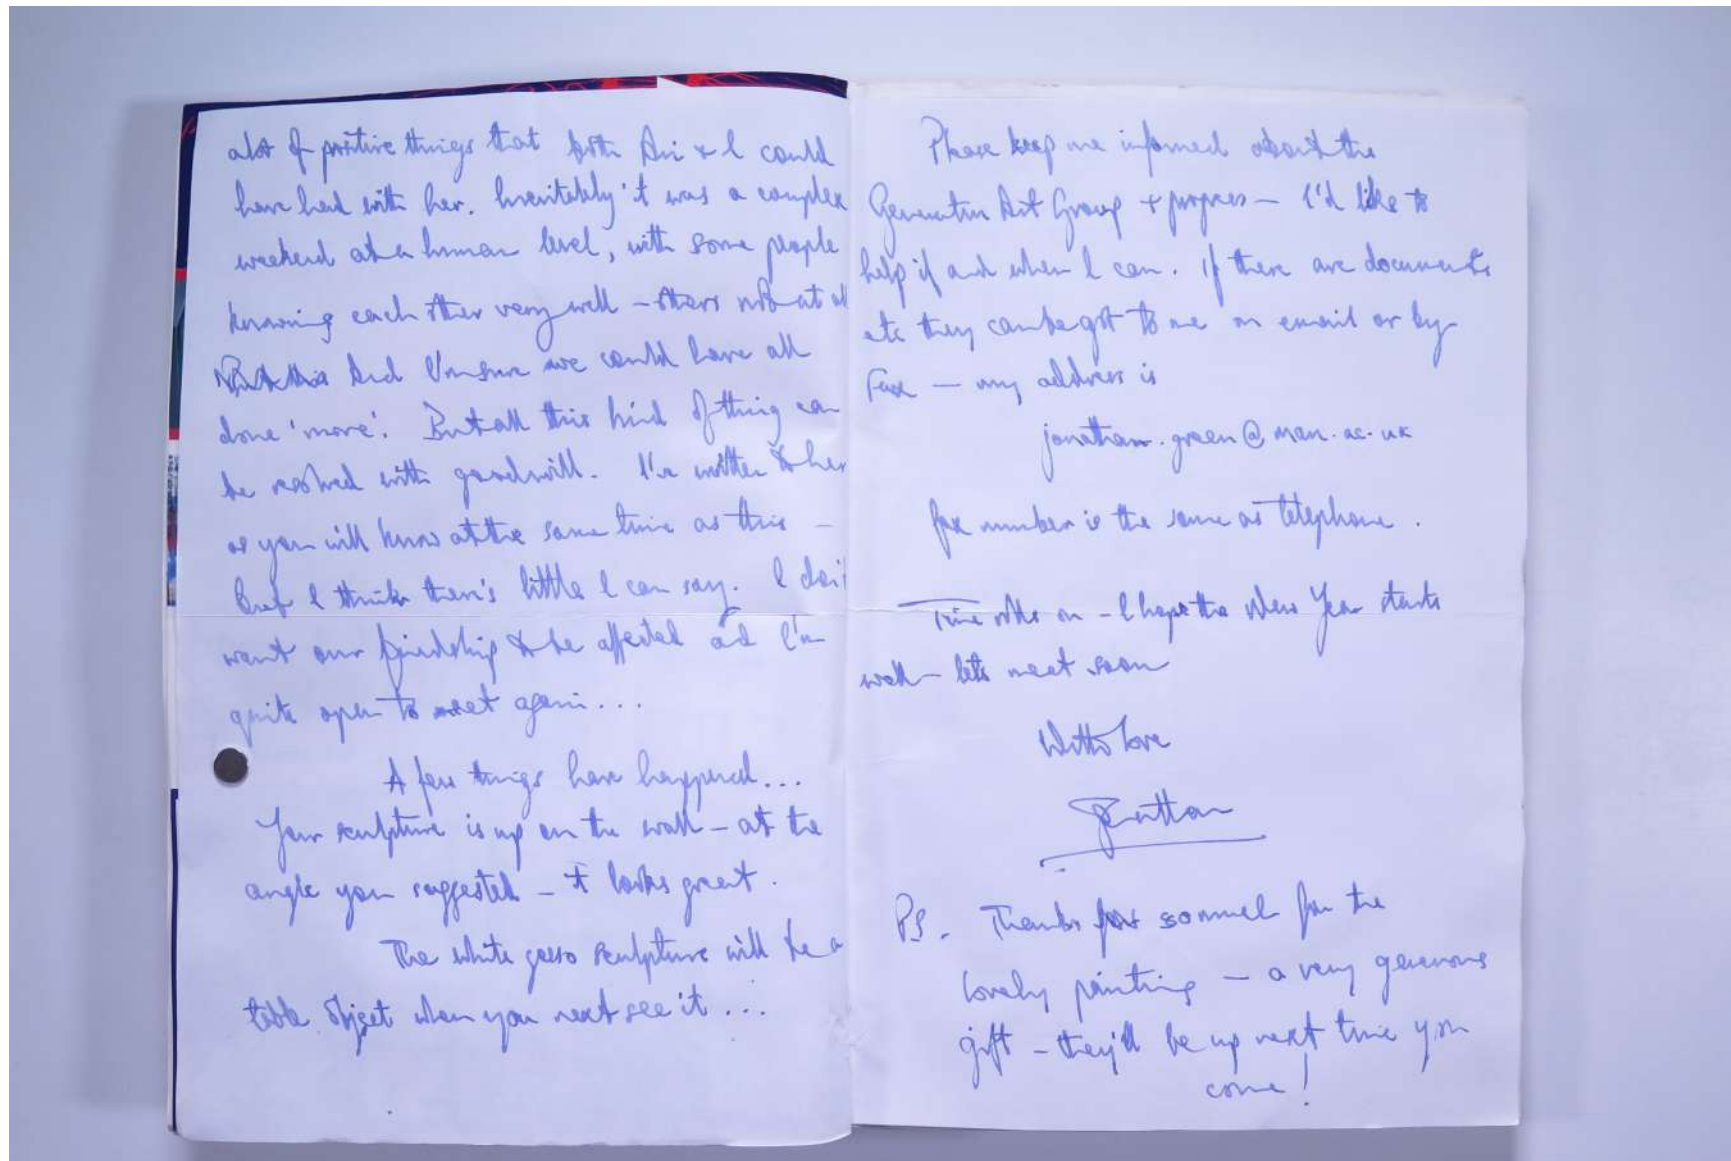 alot of positive things that both Ari & I could
have had with her. Inevitably it was a complex
weekend at a human level, with some people
knowing each other very well – others not at al
And I'm sure we could have all
done 'more'. But all this kind of thing can
be resolved with goodwill. I've written to her
as you will know at the same time as this –
But I think there's little I can say. I don't
want our friendship to be affected and I'm
quite open to meet again...
A few things have happened...
Your sculpture is up on the wall – at the
angle you suggested – it looks great.
The white gesso sculpture will be a
table object when you next see it...
Please keep me informed about the
Generative Art Group & progress – I'd like to
help if and when I can. If there are documents
etc they can be got to me on email or by
Fax – my address is
jonathan.green@man.ac.uk
fax number is the same as telephone.
Time on – I hope the New Year starts
well – lets meet soon
With love
Jonathan
PS. Thanks for so much for the
lovely painting – a very generous
gift – they'll be up next time you
come!